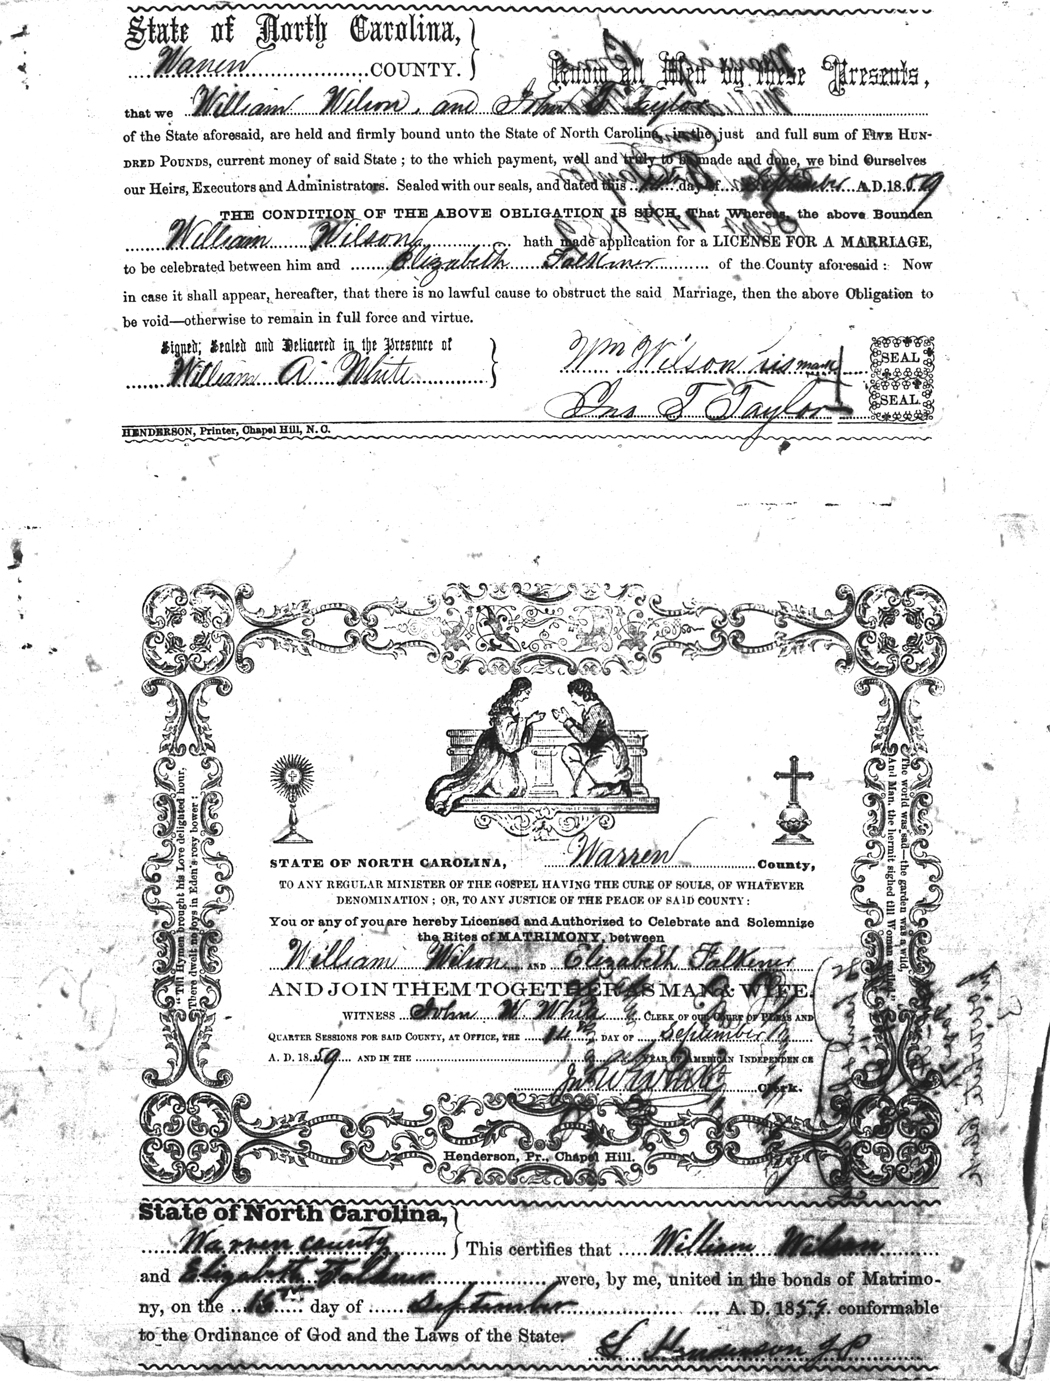 State of North Carolina,
Warren COUNTY.
Know all Men by these Presents,
that we William Wilson, and John T Taylor
of the State aforesaid, are held and firmly bound unto the State of North Carolina, in the just and full sum of FIVE HUN-
DRED POUNDS, current money of said State ; to the which payment, well and truly to be made and done, we bind Ourselves
our Heirs, Executors and Administrators. Sealed with our seals, and dated this day of September A.D.1859
THE CONDITION OF THE ABOVE OBLIGATION IS SUCH, That Whereas, the above Bounden
William Wilson hath made application for a LICENSE FOR A MARRIAGE,
to be celebrated between him and Elizabeth Falkener of the County aforesaid : Now
in case it shall appear, hereafter, that there is no lawful cause to obstruct the said Marriage, then the above Obligation to
be void—otherwise to remain in full force and virtue.
Signed, Sealed and Delivered in the Presence of
William A White
Wm Wilson his mark
SEAL
Jno T Taylor
SEAL.
HENDERSON, Printer, Chapel Hill, N. C.
"Till Hymen brought his Love delighted hour,
There dwelt no joys in Eden's rosy bower :
The world was sad—the garden was a wild,
And Man, the hermit sighed till Woman smiled."
STATE OF NORTH CAROLINA, Warren County,
TO ANY REGULAR MINISTER OF THE GOSPEL HAVING THE CURE OF SOULS, OF WHATEVER
DENOMINATION ; OR, TO ANY JUSTICE OF THE PEACE OF SAID COUNTY :
You or any of you are hereby Licensed and Authorized to Celebrate and Solemnize
the Rites of MATRIMONY, between
William Wilson AND Elizabeth Falkener
AND JOIN THEM TOGETHER AS MAN & WIFE.
WITNESS John W. White CLERK OF OUR COURT OF PLEAS AND
QUARTER SESSIONS FOR SAID COUNTY, AT OFFICE, THE 14th DAY OF September
A. D. 1859 AND IN THE YEAR OF AMERICAN INDEPENDENCE
Jno W White Clerk.
Henderson, Pr., Chapel Hill.
State of North Carolina,
Warren county This certifies that William Wilson
and Elizabeth Falkner were, by me, united in the bonds of Matrimo-
ny, on the 15th day of September A. D. 1859. conformable
to the Ordinance of God and the Laws of the State.
Henderson J P